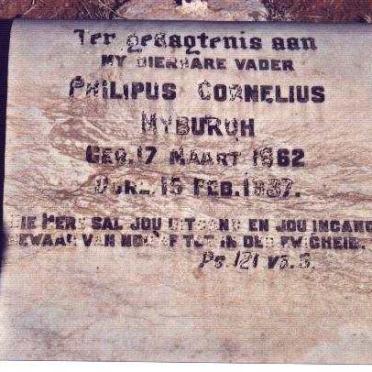 Ter gedagtenis aan
MY DIERBARE VADER
PHILIPUS CORNELIUS
MYBURGH
GEB. 17 MAART 1862
OORL. 15 FEB. 1937.
DIE HERE SAL JOU UITGANG EN JOU INGANG
BEWAAR VAN NOU AF TOT IN DER EWIGHEID.
Ps. 121 vs.